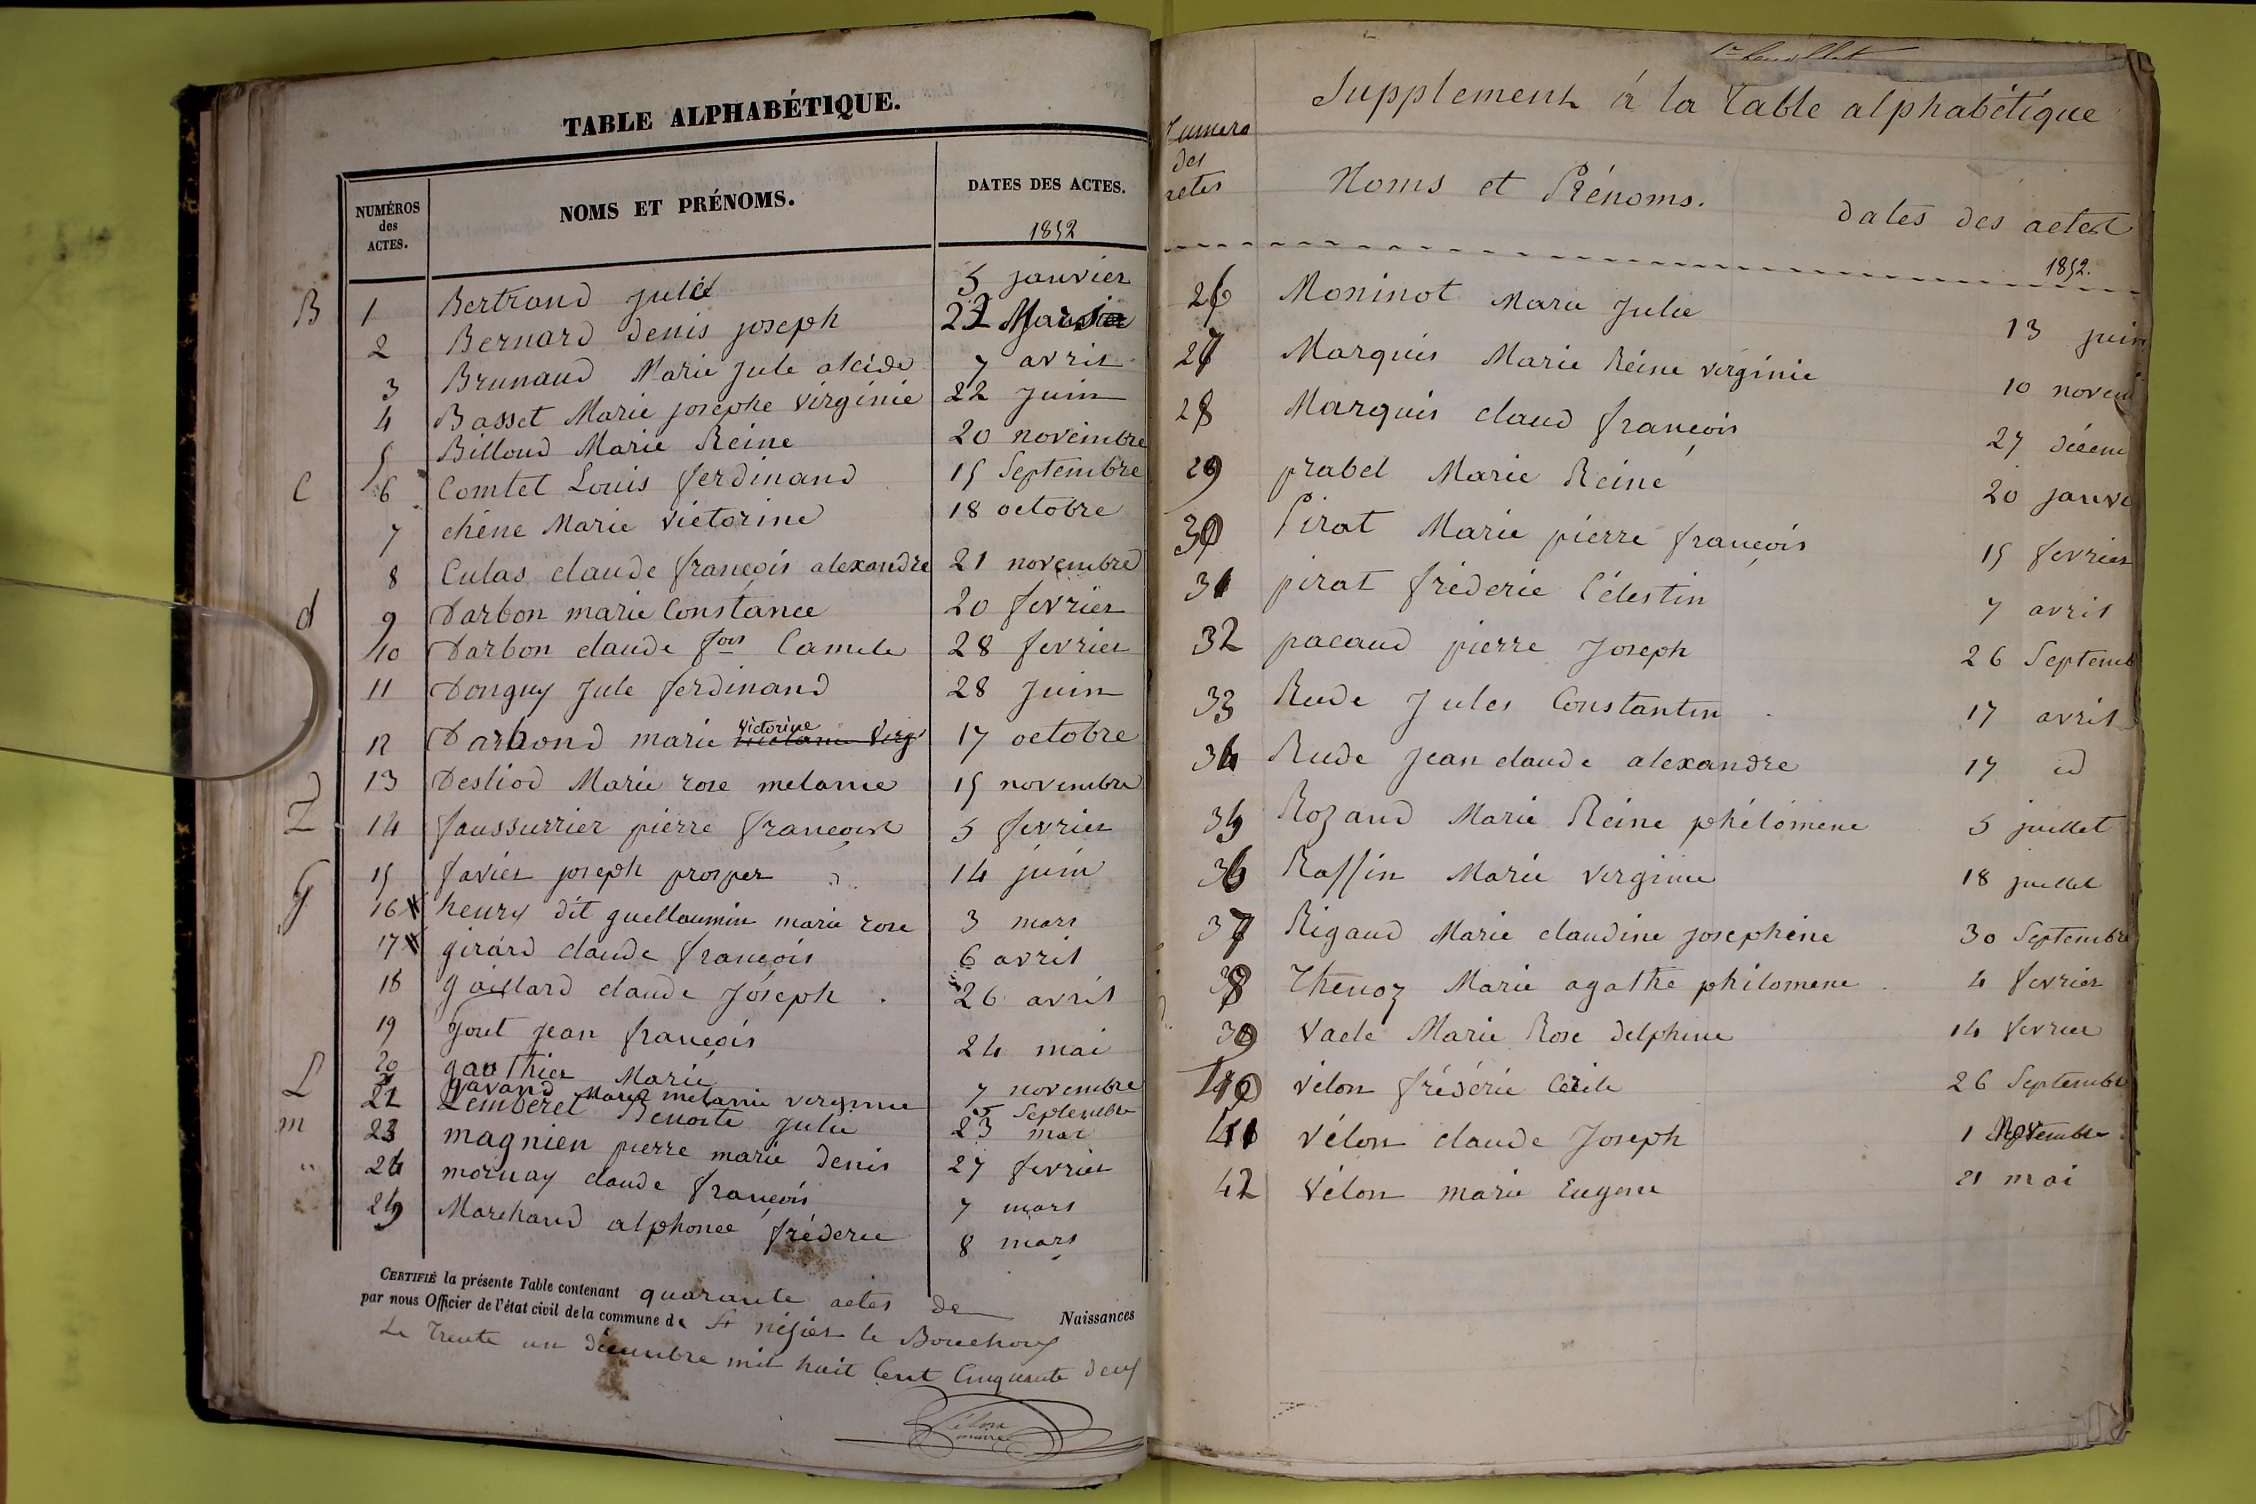 TABLE ALPHABÉTIQUE.
NUMÉROS des ACTES. NOMS ET PRÉNOMS. DATES DES ACTES.
1852
B 1 Bertrand Julie 5 janvier
2 Bernard denis joseph 22 Mars
3 Brunaud Marie Jule alcide 7 avril
4 Basset Marie josephe virginie 22 Juin
5 Billoud Marie Reine 20 novembre
C 6 Comtet Louis ferdinand 15 Septembre
7 chêne Marie victorine 18 octobre
8 Culas claude françois alexandre 21 novembre
d 9 Darbon marie Constance 20 fevrier
10 Darbon claude fois Camile 28 fevrier
11 Donguy Jule ferdinand 28 Juin
12 Darbond marie victorine 17 octobre
13 Desliod Marie rose melanie 15 novembre
14 faussurrier pierre françois 5 fevrier
15 favier joseph prosper 14 juin
g 16 henry dit guellaumin marie rose 3 mars
17 girard claude françois 6 avril
18 gaillard claude Joseph 26 avril
19 gout jean françois 24 mai
20 gauthier Marie 7 novembre
21 gavand Marie melanie virginie 5 Septembre
L 22 Lemberet Benoite Julie 23 mai
m 23 magnien pierre marie denis 27 fevrier
24 mornay claude françois 7 mars
25 Marchand alphonce fréderic 8 mars
CERTIFIÉ la présente Table contenant quarante actes de Naissances
par nous Officier de l'état civil de la commune de St nizier le Bouchoux
Le trente un décembre mil huit Cent Cinquante deux
Vélon
maire
1er feuillet
Supplement à la Table alphabétique
Numero des actes Noms et Prénoms. dates des actes
1852.
26 Moninot Marie Julie 13 juin
27 Marquis Marie Reine virginie 10 novem
28 Marquis claud françois 27 décem
29 prabel Marie Reine 20 janvi
30 Pirat Marie pierre françois 15 fevrier
31 pirat fréderic Célestin 7 avril
32 pacaud pierre Joseph 26 Septemb
33 Rude Jules Constantin 17 avril
34 Rude Jean claude alexandre 17 id
35 Rozand Marie Reine philomene 5 juillet
36 Raffin Marie virginie 18 juillet
37 Rigaud Marie claudine josephine 30 Septembre
38 Thenoz Marie agathe philomene 4 fevrier
39 vacle Marie Rose delphine 14 fevrier
40 vélon fréderic Cécile 26 Septembre
41 vélon claude Joseph 1 Novembre
42 vélon marie Eugene 21 mai